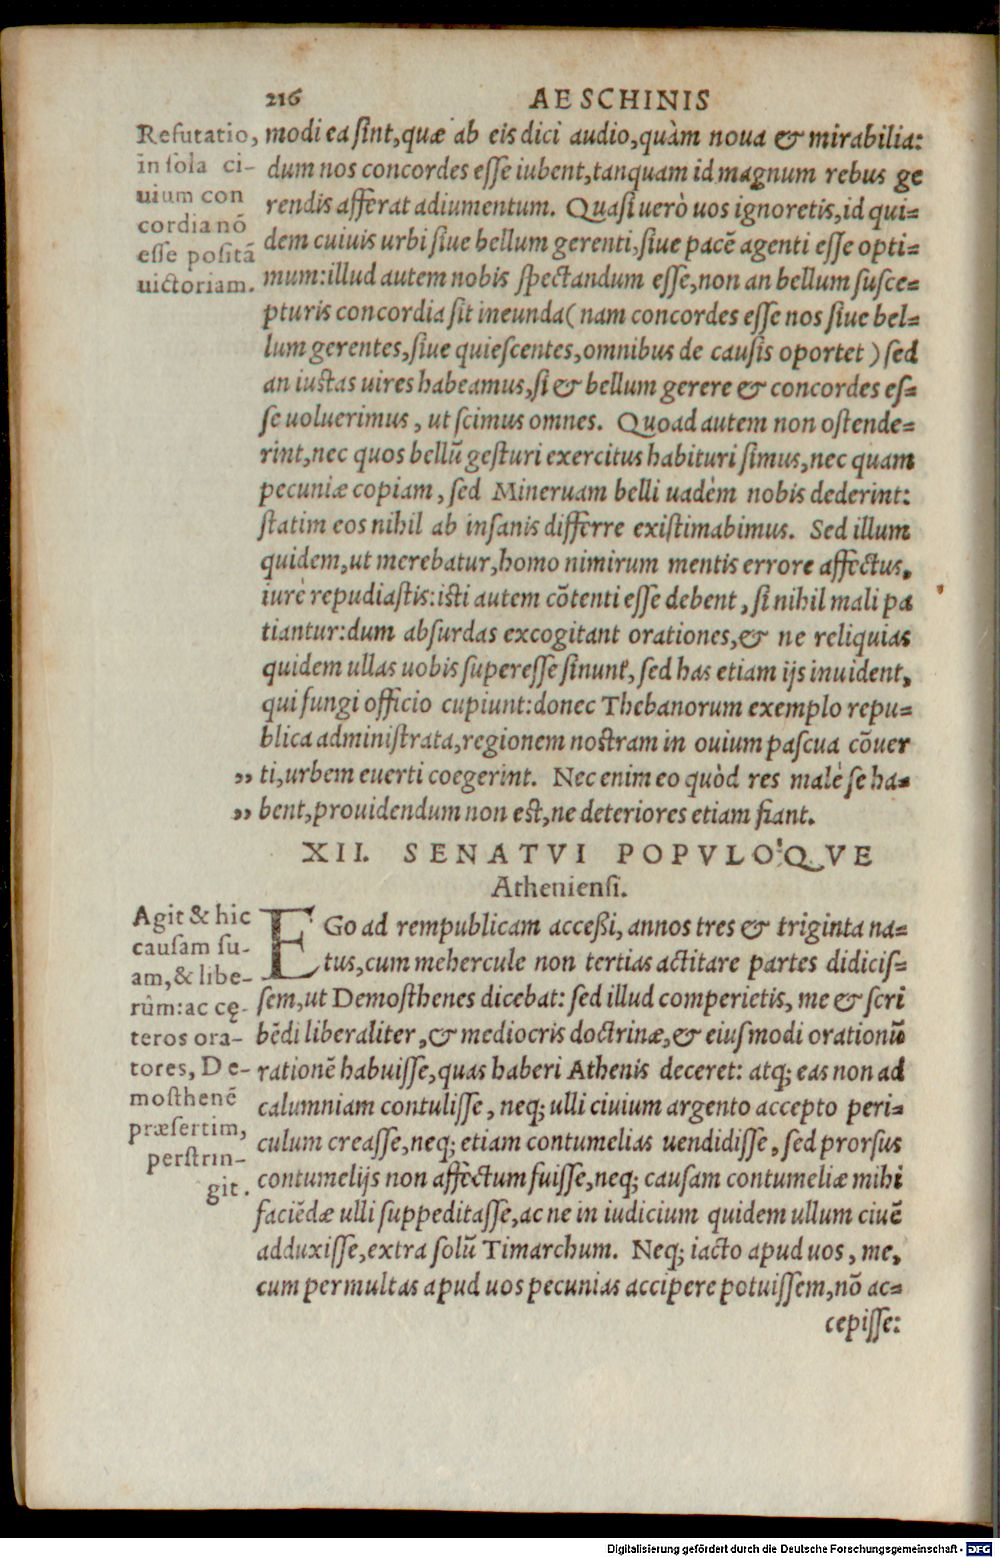 216 AESCHINIS
Refutatio,
in sola ci-
uium con
cordia nō
esse positā
uictoriam.
modi ea sint, quæ ab eis dici audio, quàm noua & mirabilia:
dum nos concordes esse iubent, tanquam id magnum rebus ge
rendis afferat adiumentum. Quasi uerò uos ignoretis, id qui-
dem cuiuis urbi siue bellum gerenti, siue pacē agenti esse opti-
mum: illud autem nobis spectandum esse, non an bellum susce-
pturis concordia sit ineunda (nam concordes esse nos siue bel-
lum gerentes, siue quiescentes, omnibus de causis oportet) sed
an iustas uires habeamus, si & bellum gerere & concordes es-
se uoluerimus, ut scimus omnes. Quoad autem non ostende-
rint, nec quos bellū gesturi exercitus habituri simus, nec quam
pecuniæ copiam, sed Mineruam belli uadem nobis dederint:
statim eos nihil ab insanis differre existimabimus. Sed illum
quidem, ut merebatur, homo nimirum mentis errore affectus,
iure repudiastis: isti autem cōtenti esse debent, si nihil mali pa
tiantur: dum absurdas excogitant orationes, & ne reliquias
quidem ullas uobis superesse sinunt, sed has etiam ijs inuident,
qui fungi officio cupiunt: donec Thebanorum exemplo repu-
blica administrata, regionem nostram in ouium pascua cōuer
„ ti, urbem euerti coegerint. Nec enim eo quòd res malè se ha-
„ bent, prouidendum non est, ne deteriores etiam fiant.
XII. SENATVI POPVLO'QVE
Atheniensi.
Agit & hic
causam su-
am, & libe-
rûm: ac cę-
teros ora-
tores, De-
mosthenē
præsertim,
perstrin-
git.
EGo ad rempublicam acceßi, annos tres & triginta na-
tus, cum mehercule non tertias actitare partes didicis-
sem, ut Demosthenes dicebat: sed illud comperietis, me & scri
bēdi liberaliter, & mediocris doctrinæ, & eiusmodi orationū
rationē habuisse, quas haberi Athenis deceret: atq; eas non ad
calumniam contulisse, neq; ulli ciuium argento accepto peri-
culum creasse, neq; etiam contumelias uendidisse, sed prorsus
contumelijs non affectum fuisse, neq; causam contumeliæ mihi
faciēdæ ulli suppeditasse, ac ne in iudicium quidem ullum ciuē
adduxisse, extra solū Timarchum. Neq; iacto apud uos, me,
cum permultas apud uos pecunias accipere potuissem, nō ac-
cepisse:
Digitalisierung gefördert durch die Deutsche Forschungsgemeinschaft - DFG